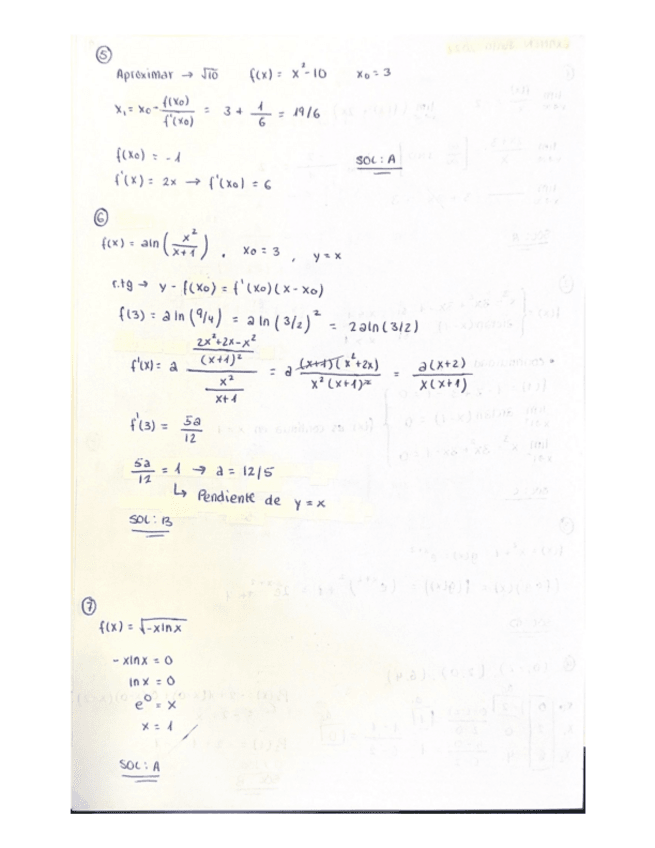 5
Aproximar → √10 f(x) = x² - 10 x₀ = 3
x₁ = x₀ - f(x₀)/f'(x₀) = 3 + 1/6 = 19/6
f(x₀) = -1 SOL: A
f'(x) = 2x → f'(x₀) = 6
6
f(x) = aln(x²/(x+1)), x₀ = 3, y = x
r.tg → y - f(x₀) = f'(x₀)(x - x₀)
f(3) = aln(9/4) = aln(3/2)² = 2aln(3/2)
f'(x) = a ((2x²+2x-x²)/(x+1)²)/(x²/(x+1)) = a (x+1)(x²+2x)/(x²(x+1)²) = a(x+2)/(x(x+1))
f'(3) = 5a/12
5a/12 = 1 → a = 12/5
↳ Pendiente de y = x
SOL: B
7
f(x) = √(-xlnx)
-xlnx = 0
lnx = 0
e⁰ = x
x = 1
SOL: A